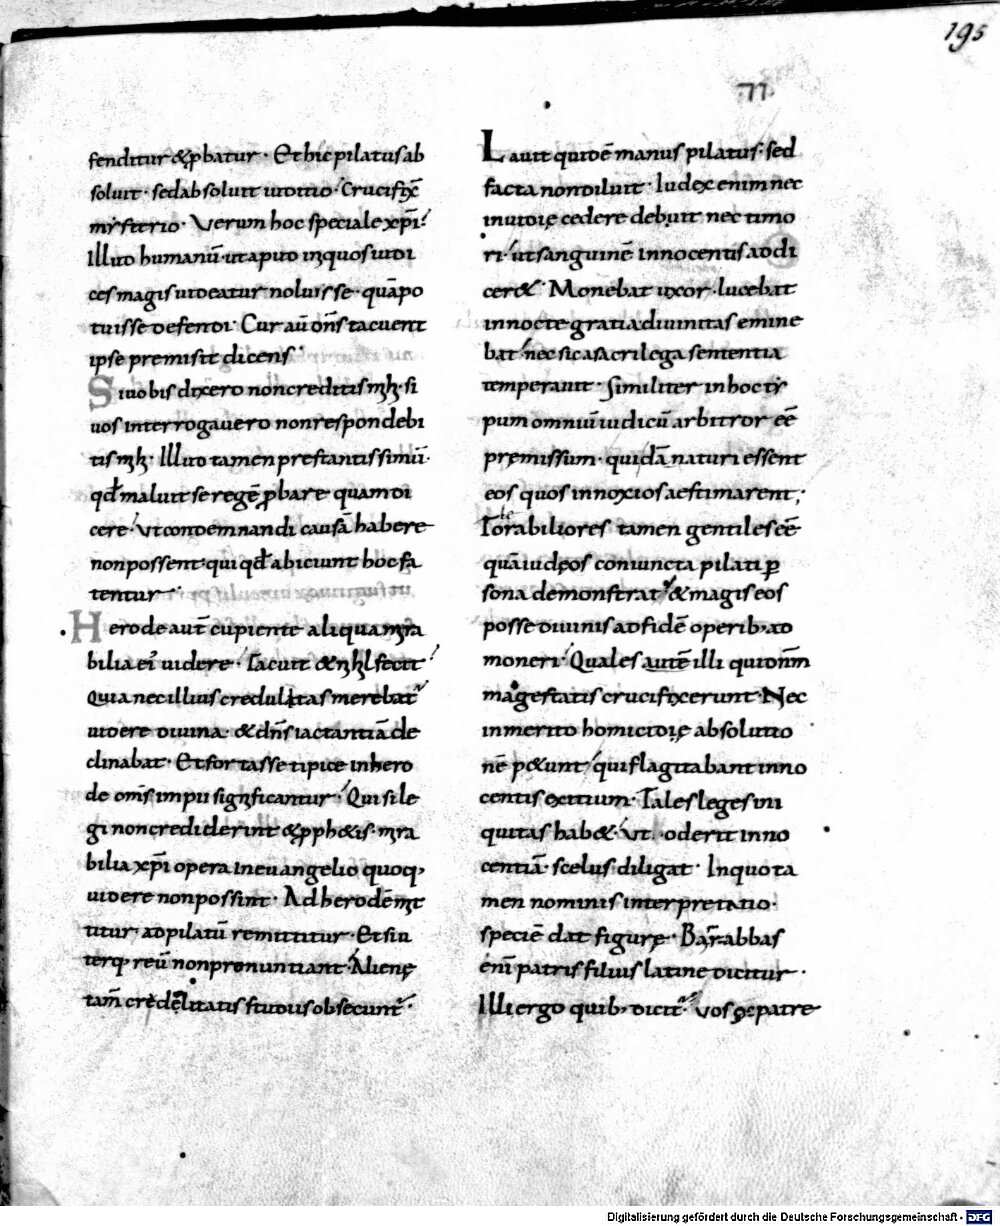 195
71
fenditur & ꝓbatur · Et hic pilatus ab
soluit · sed absoluit iuditio · Crucifix̄
mysterio · Verum hoc speciale xp̄i ·
Illud humanū · ut apud iniquos iudi
ces magis uideatur noluisse quā po
tuisse defendi · Cur aū dn̄s tacuerit
ipse premisit dicens ·
Si uobis dixero non creditis mihi · si
uos interrogauero non respondebi
tis mihi · Illud tamen prestantissimū ·
qđ maluit se regē ꝓbare quam di
cere · Ut condemnandi causā habere
non possent qui qđ abiciunt hoc fa
tentur ·
Herode aut̄ cupiente aliqua mira
bilia ei' uidere · Tacuit & nihil fecit
Quia nec illius credulitas merebat'
uidere diuina · & dn̄s iactantiā de
clinabat · Et fortasse tipice in hero
de om̄s impii significantur · Qui si le
gi non crediderint & ꝓph&is · mira
bilia xp̄i opera in euangelio quoq;
uidere non possint · Ad herodē mit
titur · ad pilatū remittitur · Et si u
terq; reū non pronuntiant · Alienę
tam̄ crudelitatis studiis obsecunt̄ ·
Lauit quidē manus pilatus · sed
facta non diluit · Iudex enim nec
inuidię cedere debuit nec timo
ri · ut sanguinē innocentis addi
cer& · Monebat uxor · lucebat
in nocte gratia · diuinitas emine
bat · nec sic a sacrilega sententia
temperauit · Similiter in hoc ty
pum omniū iudicū arbitror eē
premissum · qui dānaturi essent
eos quos innoxios aestimarent ;
Tolerabiliores tamen gentiles eē
quā iudęos coniuncta pilati ꝑ
sona demonstrat' & magis eos
posse diuinis ad fidē operib; ad
moneri · Quales autē illi qui dn̄m
magestatis crucifixerunt · Nec
inmerito homicidię absolutio
nē p&unt · qui flagitabant inno
centis exitium · Tales leges ini
quitas hab& · ut · oderit inno
centiā · scelus diligat · In quo ta
men nominis interpretatio ·
speciē dat figurę · Barabbas
eni patris filius latine dicitur ·
Illi ergo quib; dicit̄ · Vos ex patre
Digitalisierung gefördert durch die Deutsche Forschungsgemeinschaft - DFG